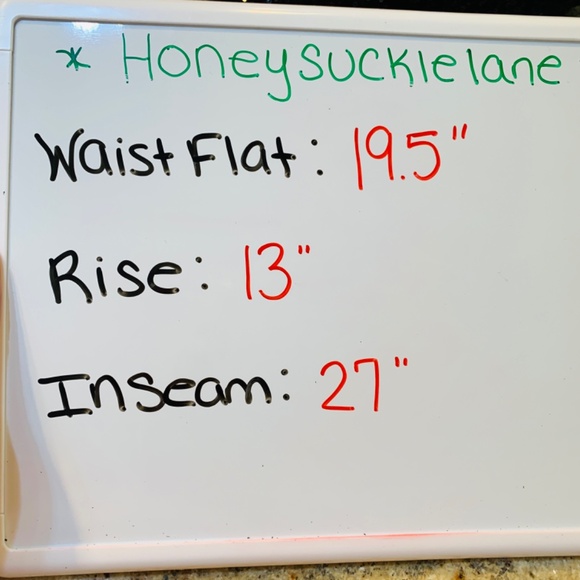 * Honeysucklelane
Waist Flat: 19.5"
Rise: 13"
Inseam: 27"